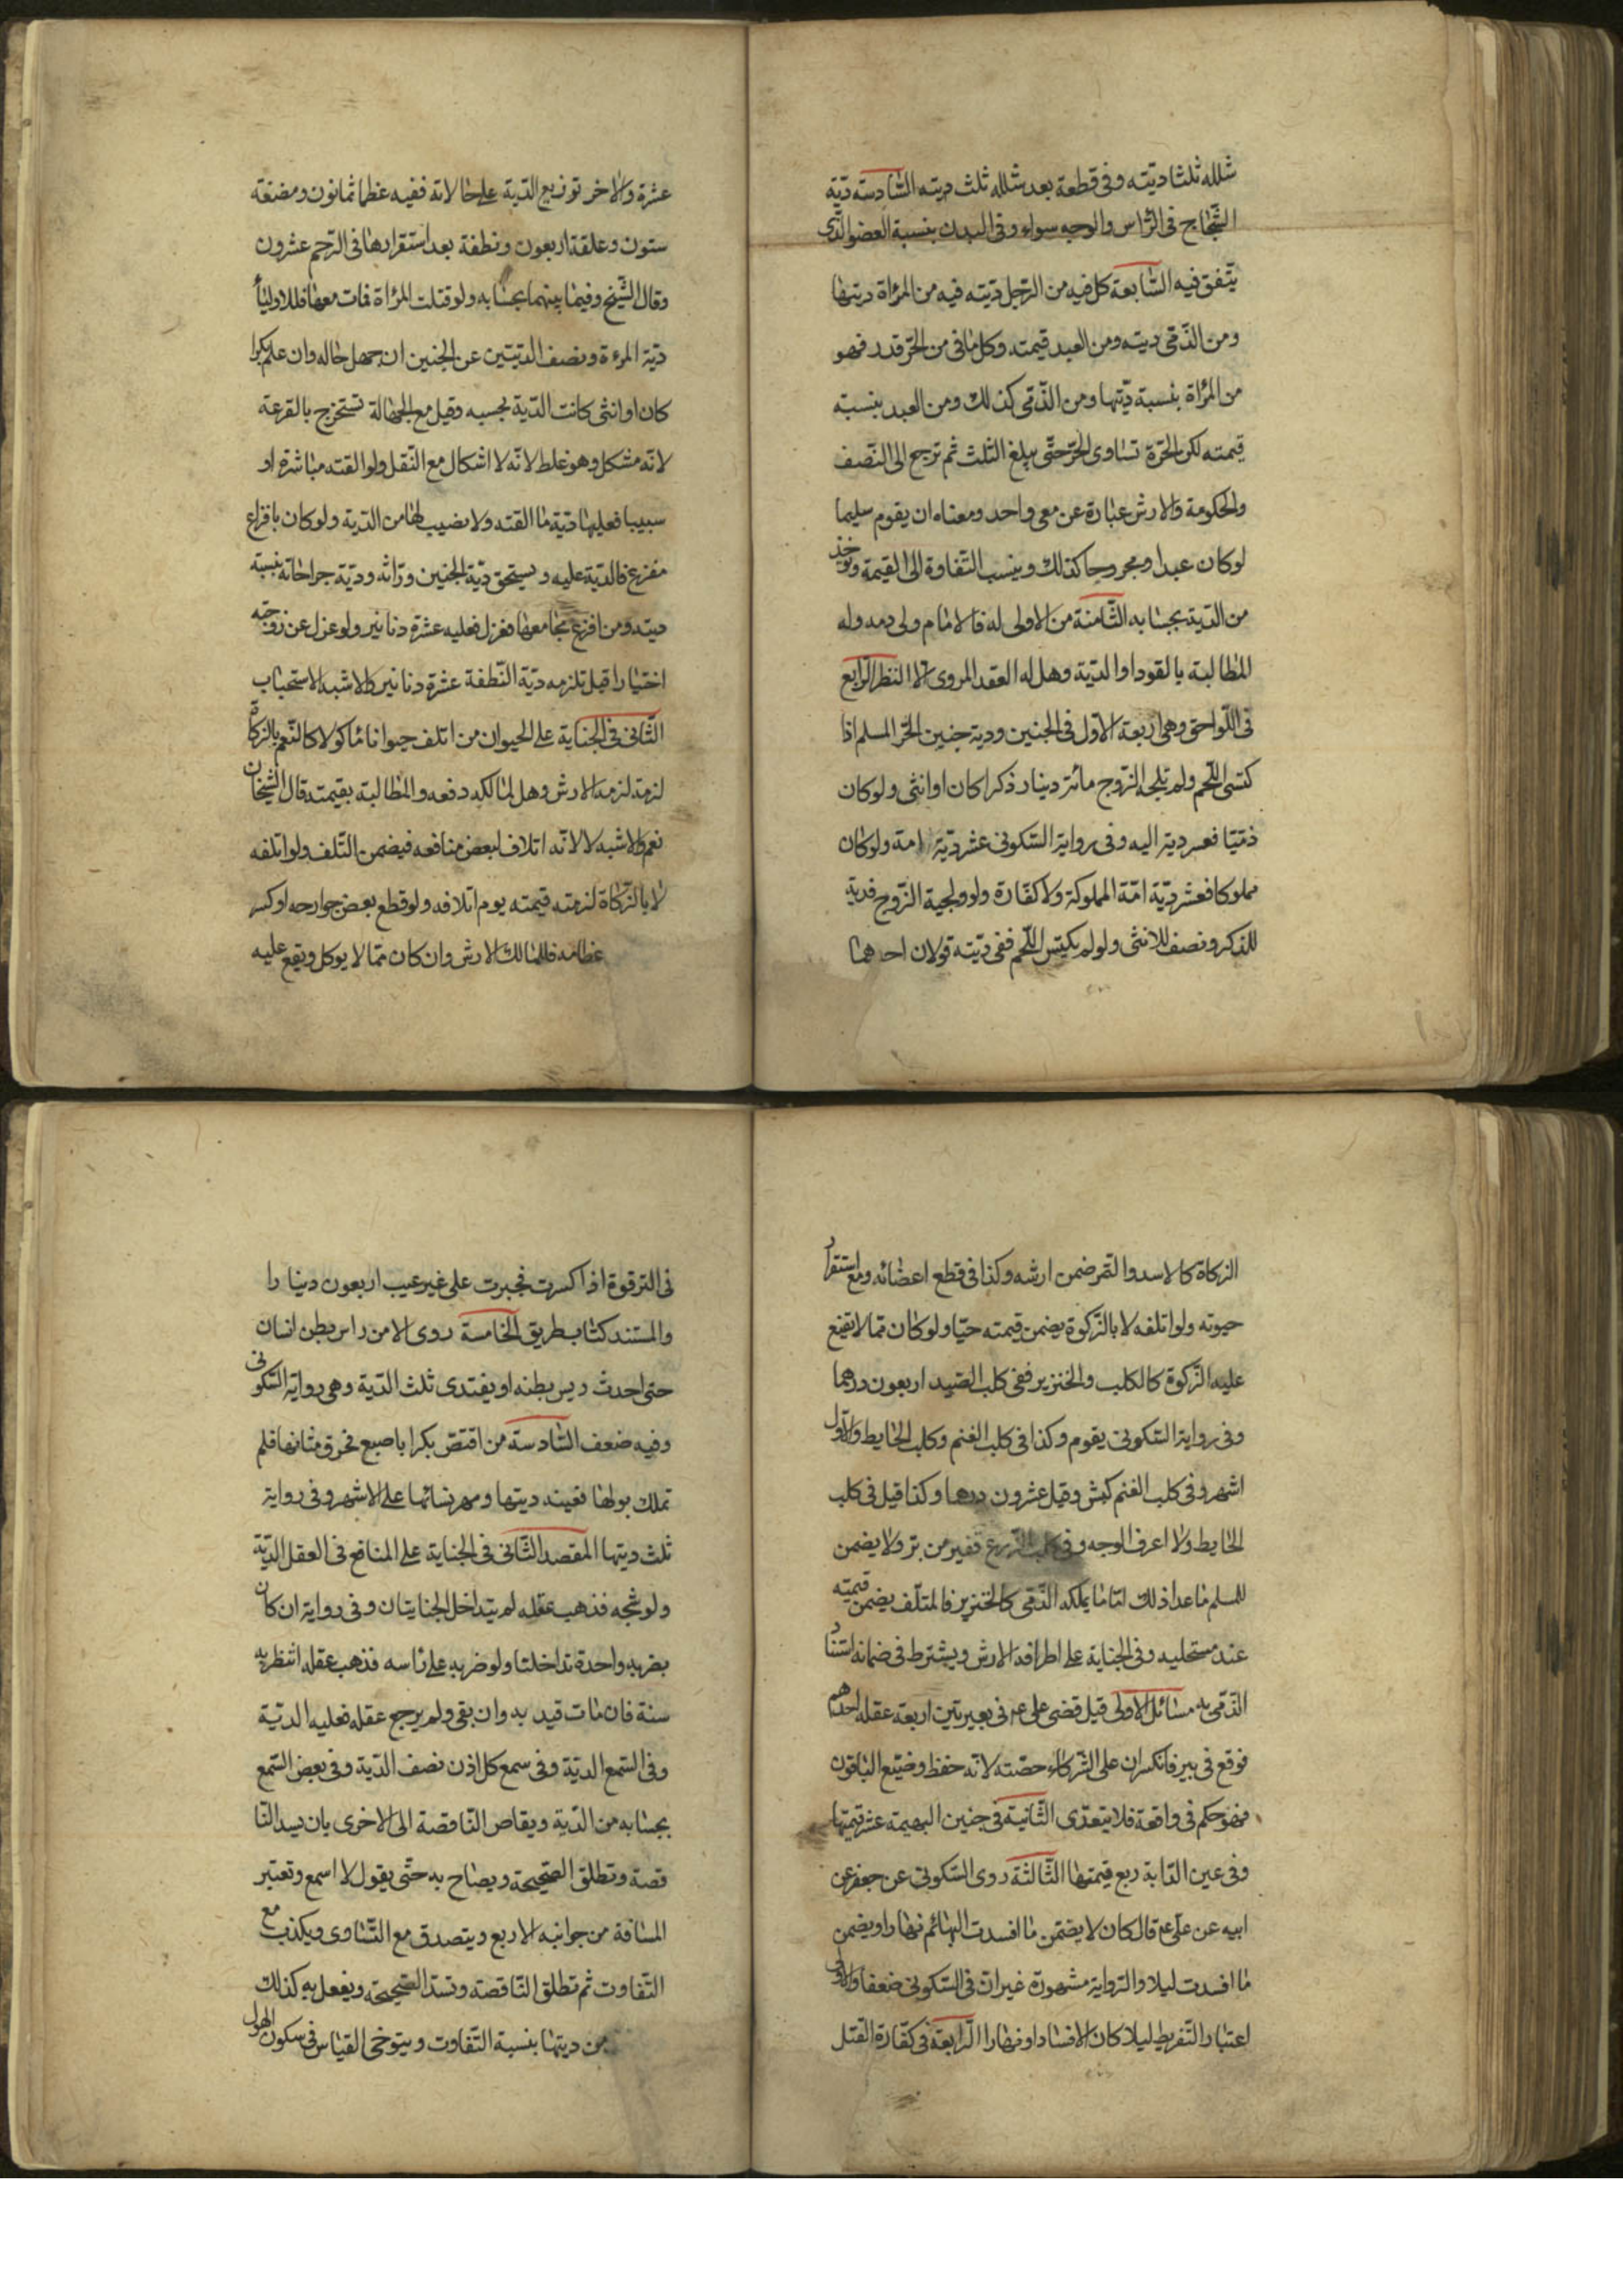 شلله ثلثا ديته وفى قطعة بعد شلله ثلث ديته السّادسة ديّة
الشّجاج فى الرّاس والوجه سواء وفى البدن بنسبة العضو الّذى
يتّفق فيه السّابعة كل فيه من الرّجل ديّته فيه من المرأة ديتها
ومن الذّمّى ديته ومن العبد قيمته وكل ما فى من الحرّ قدر فهو
من المرأة بنسبة ديّتها ومن الذّمّى كذلك ومن العبد بنسبة
قيمته لكن الحرّة تساوى الحرّ حتّى يبلغ الثلث ثم ترجع الى النّصف
والحكومة والارش عبارة عن معنى واحد ومعناه ان يقوم سليما
لو كان عبدا ومجروحا كذلك وينسب التّفاوة الى القيمة ويؤخذ
من الدّية بحسابه الثّامنة من لا ولى له فالامام ولى دمه وله
المطالبة بالقود او الدّية وهل له العفو المروى لا النظر الرّابع
فى اللّواحق وهى اربعة الاوّل فى الجنين ودية جنين الحرّ المسلم اذا
كتسى اللّحم ولم تلجه الرّوح مائة دينار ذكرا كان او انثى ولو كان
ذمّيا فعشر دية ابيه وفى رواية السّكونى عشر ديّة امة ولو كان
مملوكا فعشر ديّة امّة المملوكة ولا كفّارة ولو ولجته الرّوح فدية
للذكر ونصف للانثى ولو لم يكتس اللّحم ففى ديّته قولان احدهما
عشرة والاخر توزيع الدّية على حالاته ففيه عظما ثمانون ومضغة
ستون وعلقة اربعون ونطفة بعد استقرارها فى الرّحم عشرون
وقال الشّيخ وفيما بينهما بحسابه ولو قتلت المرأة فمات معها فللاولياء
ديّة المرءة ونصف الدّيتين عن الجنين ان جهل حاله وان علم ذكرا
كان او انثى كانت الدّية بحسبه وقيل مع الجهالة تستخرج بالقرعة
لانّه مشكل وهو غلط لانّه لا اشكال مع النّقل ولو القته مباشرة او
سبيبا فعليها ديّة ما القته ولا نصيب لها من الدّية ولو كان بافزاع
مفزع فالدّية عليه ويستحق ديّة الجنين ورّاثه وديّة جراحاته بنسبة
ديته ومن افزع مجامعها فعزل فعليه عشرة دنانير ولو عزل عن زوجته
اختيارا قيل تلزمه ديّة النّطفة عشرة دنانير والاشبه الاستحباب
الثّانى فى الجناية على الحيوان من اتلف حيوانا مأكولا كالنّعم بالزكاة
لزمه الارش وهل لمالكه دفعه والمطالبة بقيمته قال الشيخان
نعم والاشبه لا لانّه اتلاف لبعض منافعه فيضمن التّلف ولو اتلفه
لا بالذّكاة لزمته قيمته يوم اتلافه ولو قطع بعض جوارحه او كسر
عظامه فللمالك الارش وان كان ممّا لا يوكل ويقع عليه
الزكاة كالاسد والنّمر ضمن ارشه وكذا فى قطع اعضائه مع استقرار
حيوته ولو اتلفه لا بالذّكوة يضمن قيمته حيّا ولو كان ممّا لا يقع
عليه الزّكوة كالكلب والخنزير ففى كلب الصّيد اربعون درهما
وفى رواية السّكونى يقوم وكذا فى كلب الغنم وكلب الحايط والاوّل
اشهر وفى كلب الغنم كبش وقيل عشرون درهما وكذا قيل فى كلب
الحايط ولا اعرف الوجه وفى كلب الزّرع قفيز من برّ ولا يضمن
للمسلم ما عدا ذلك امّا ما يملكه الذّمّى كالخنزير فالمتلّف يضمن قيمته
عند مستحليه وفى الجناية على اطرافه الارش ويشترط فى ضمانه استتار
الذّمّى به مسائل الاولى قيل قضى على ع فى بعير بين اربعة عقله احدهم
فوقع فى بير فانكسر ان على الشّركاء حصّته لانّه حفظ وضيّع الباقون
فهو حكم فى واقعة فلا يتعدّى الثّانية فى جنين البهيمة عشر قيمتها
وفى عين الدّابة ربع قيمتها الثّالثة روى السّكونى عن جعفر عن
ابيه عن على ع قال كان لا يضمّن ما افسدت البهائم نهارا ويضمن
ما افسدت ليلا والرّواية مشهورة غير انّ فى السّكونى ضعفا والاولى
اعتبار التّفريط ليلا كان الافساد او نهارا الرّابعة فى كفّارة القتل
فى الترقوة اذا كسرت فجبرت على غير عيب اربعون دينارا
والمستند كتاب طريق الخامسة روى لامن راس بطن انسان
حتى احدث ديس بطنه او يفتدى ثلث الدّية وهى رواية السّكونى
وفيه ضعف السّادسة من اقتضّ بكرا باصبع فخرق مثانها فلم
تملك بولها فعينه ديتها ومهر نسائها على الاشهر وفى رواية
ثلث ديتها المقصد الثّانى فى الجناية على المنافع فى العقل الديّة
ولو شجه فذهب عقله لم يتداخل الجنايتان وفى رواية ان كان
بضربه واحدة تداخلتا ولو ضربه على رأسه فذهب عقله انتظر به
سنة فان مات قيد به وان بقى ولم يرجع عقله فعليه الديّة
وفى السّمع الديّة وفى سمع كل اذن نصف الدّية وفى بعض السّمع
بحسابه من الدّية ويقاس النّاقصة الى الاخرى بان يسد النّا
قصة وتطلق الصّحيحة ويصاح به حتّى يقول لا اسمع وتعتبر
المسافة من جوانبه الاربع ويتصدق مع التّساوى ويكذب مع
التّفاوت ثم تطلق النّاقصة وتسدّ الصّحيحة ويفعل به كذلك
من ديتها بنسبة التّفاوت ويتوخى القياس فى سكون الهول